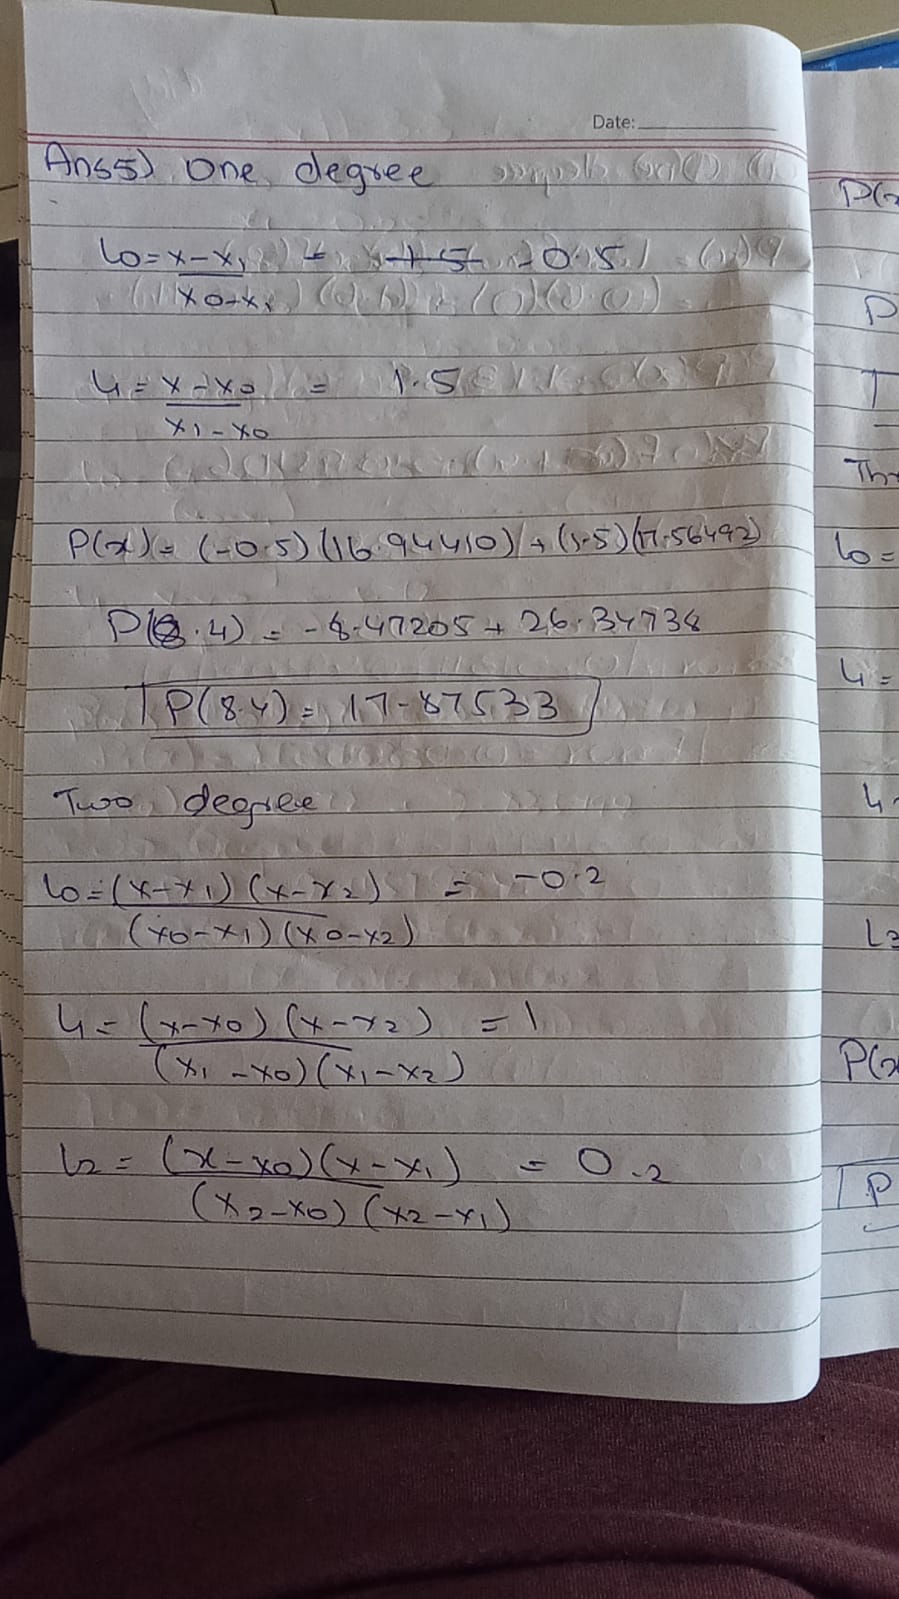 Date:
Ans5) One degree
L0 = x-x1 = -0.5
x0-x1
L1 = x-x0 = 1.5
x1-x0
P(x) = (-0.5)(16.94410) + (1.5)(17.56492)
P(8.4) = -8.47205 + 26.34738
P(8.4) = 17.87533
Two degree
L0 = (x-x1)(x-x2) = -0.2
(x0-x1)(x0-x2)
L1 = (x-x0)(x-x2) = 1
(x1-x0)(x1-x2)
L2 = (x-x0)(x-x1) = 0.2
(x2-x0)(x2-x1)
P(x
P
Thr
L0 =
L1 =
L2
P(x
P